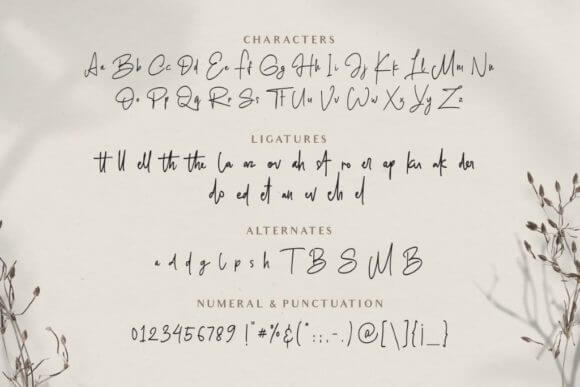 CHARACTERS
Aa Bb Cc Dd Ee Ff Gg Hh Ii Jj Kk Ll Mm Nn
Oo Pp Qq Rr Ss Tt Uu Vv Ww Xx Yy Zz
LIGATURES
tt ll ell th the la az ov ah st ro er ap kan ak der
do ed et an ev ch el
ALTERNATES
a d d g l p s h T B S M B
NUMERAL & PUNCTUATION
0123456789 !"#%&(*:;,-.)@[\]{¡_}